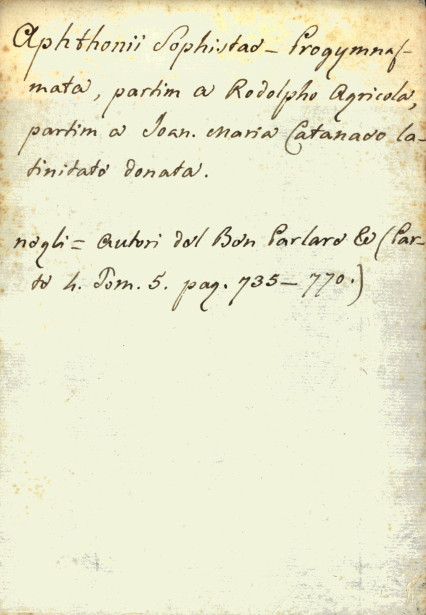 Aphthonii Sophistae – Progymnas-
mata, partim a Rodolpho Agricola,
partim a Joan. Maria Catanaeo la-
tinitate donata.
negli = Autori del Ben Parlare &c (Par-
te 4. Tom. 5. pag. 735 – 770.)